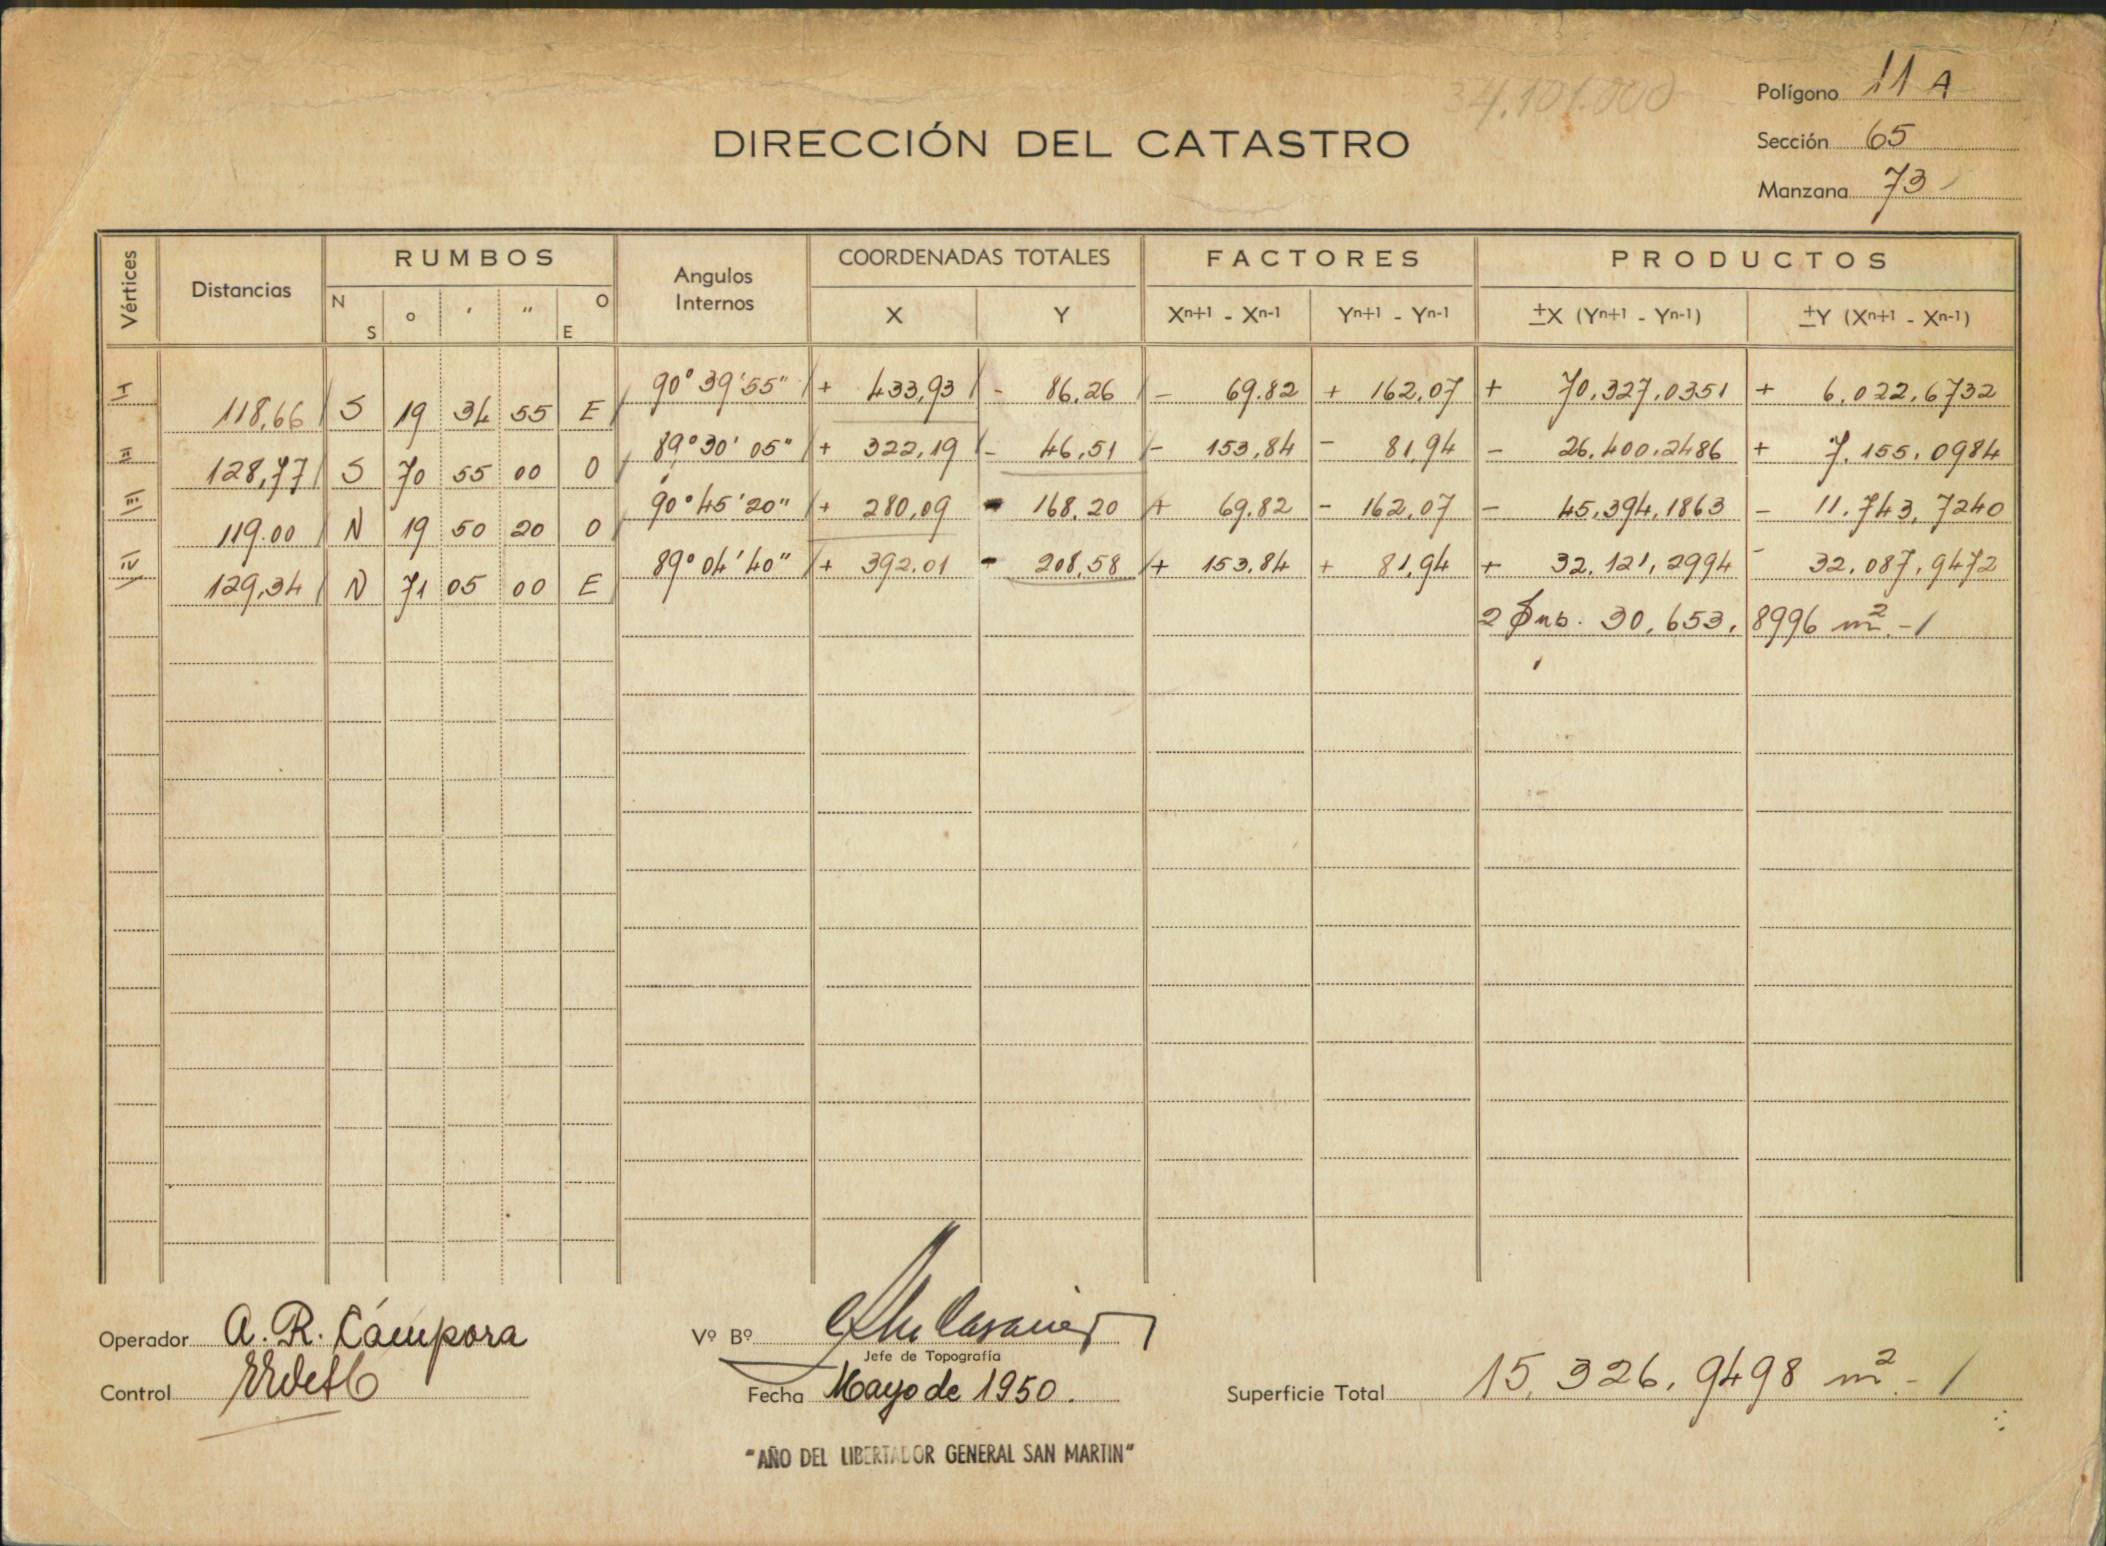 34.101.000
Polígono 11 A
DIRECCIÓN DEL CATASTRO
Sección 65
Manzana 73
Vértices Distancias RUMBOS Angulos Internos COORDENADAS TOTALES FACTORES PRODUCTOS
N S ° ' " O E X Y Xn+1 - Xn-1 Yn+1 - Yn-1 ±X (Yn+1 - Yn-1) ±Y (Xn+1 - Xn-1)
I 118,66 S 19 34 55 E 90° 39' 55" + 433,93 - 86.26 - 69.82 + 162,07 + 70,327,0351 + 6.022,6732
II 128,77 S 70 55 00 O 89° 30' 05" + 322,19 - 46,51 - 153,84 - 81,94 - 26.400.2486 + 7.155.0984
III 119.00 N 19 50 20 O 90° 45' 20" + 280,09 - 168.20 + 69.82 - 162,07 - 45,394,1863 - 11.743,7240
IV 129,34 N 71 05 00 E 89° 04' 40" + 392.01 - 208,58 + 153,84 + 81,94 + 32.121,2994 - 32.087,9472
2 30,653,8996 m².-
Operador A. R. Cámpora
Vº Bº
Jefe de Topografía
Control
Fecha Mayo de 1950.
Superficie Total 15,326,9498 m².-
"AÑO DEL LIBERTADOR GENERAL SAN MARTIN"